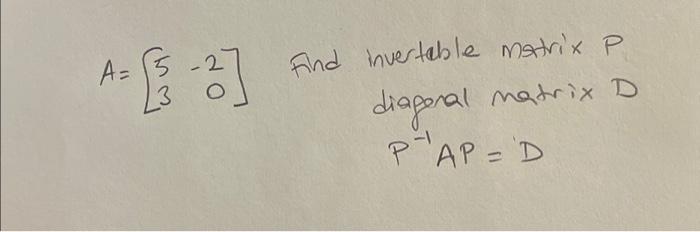 A = [5 -2 Find invertable matrix P
3 0] diagonal matrix D
P⁻¹AP = D